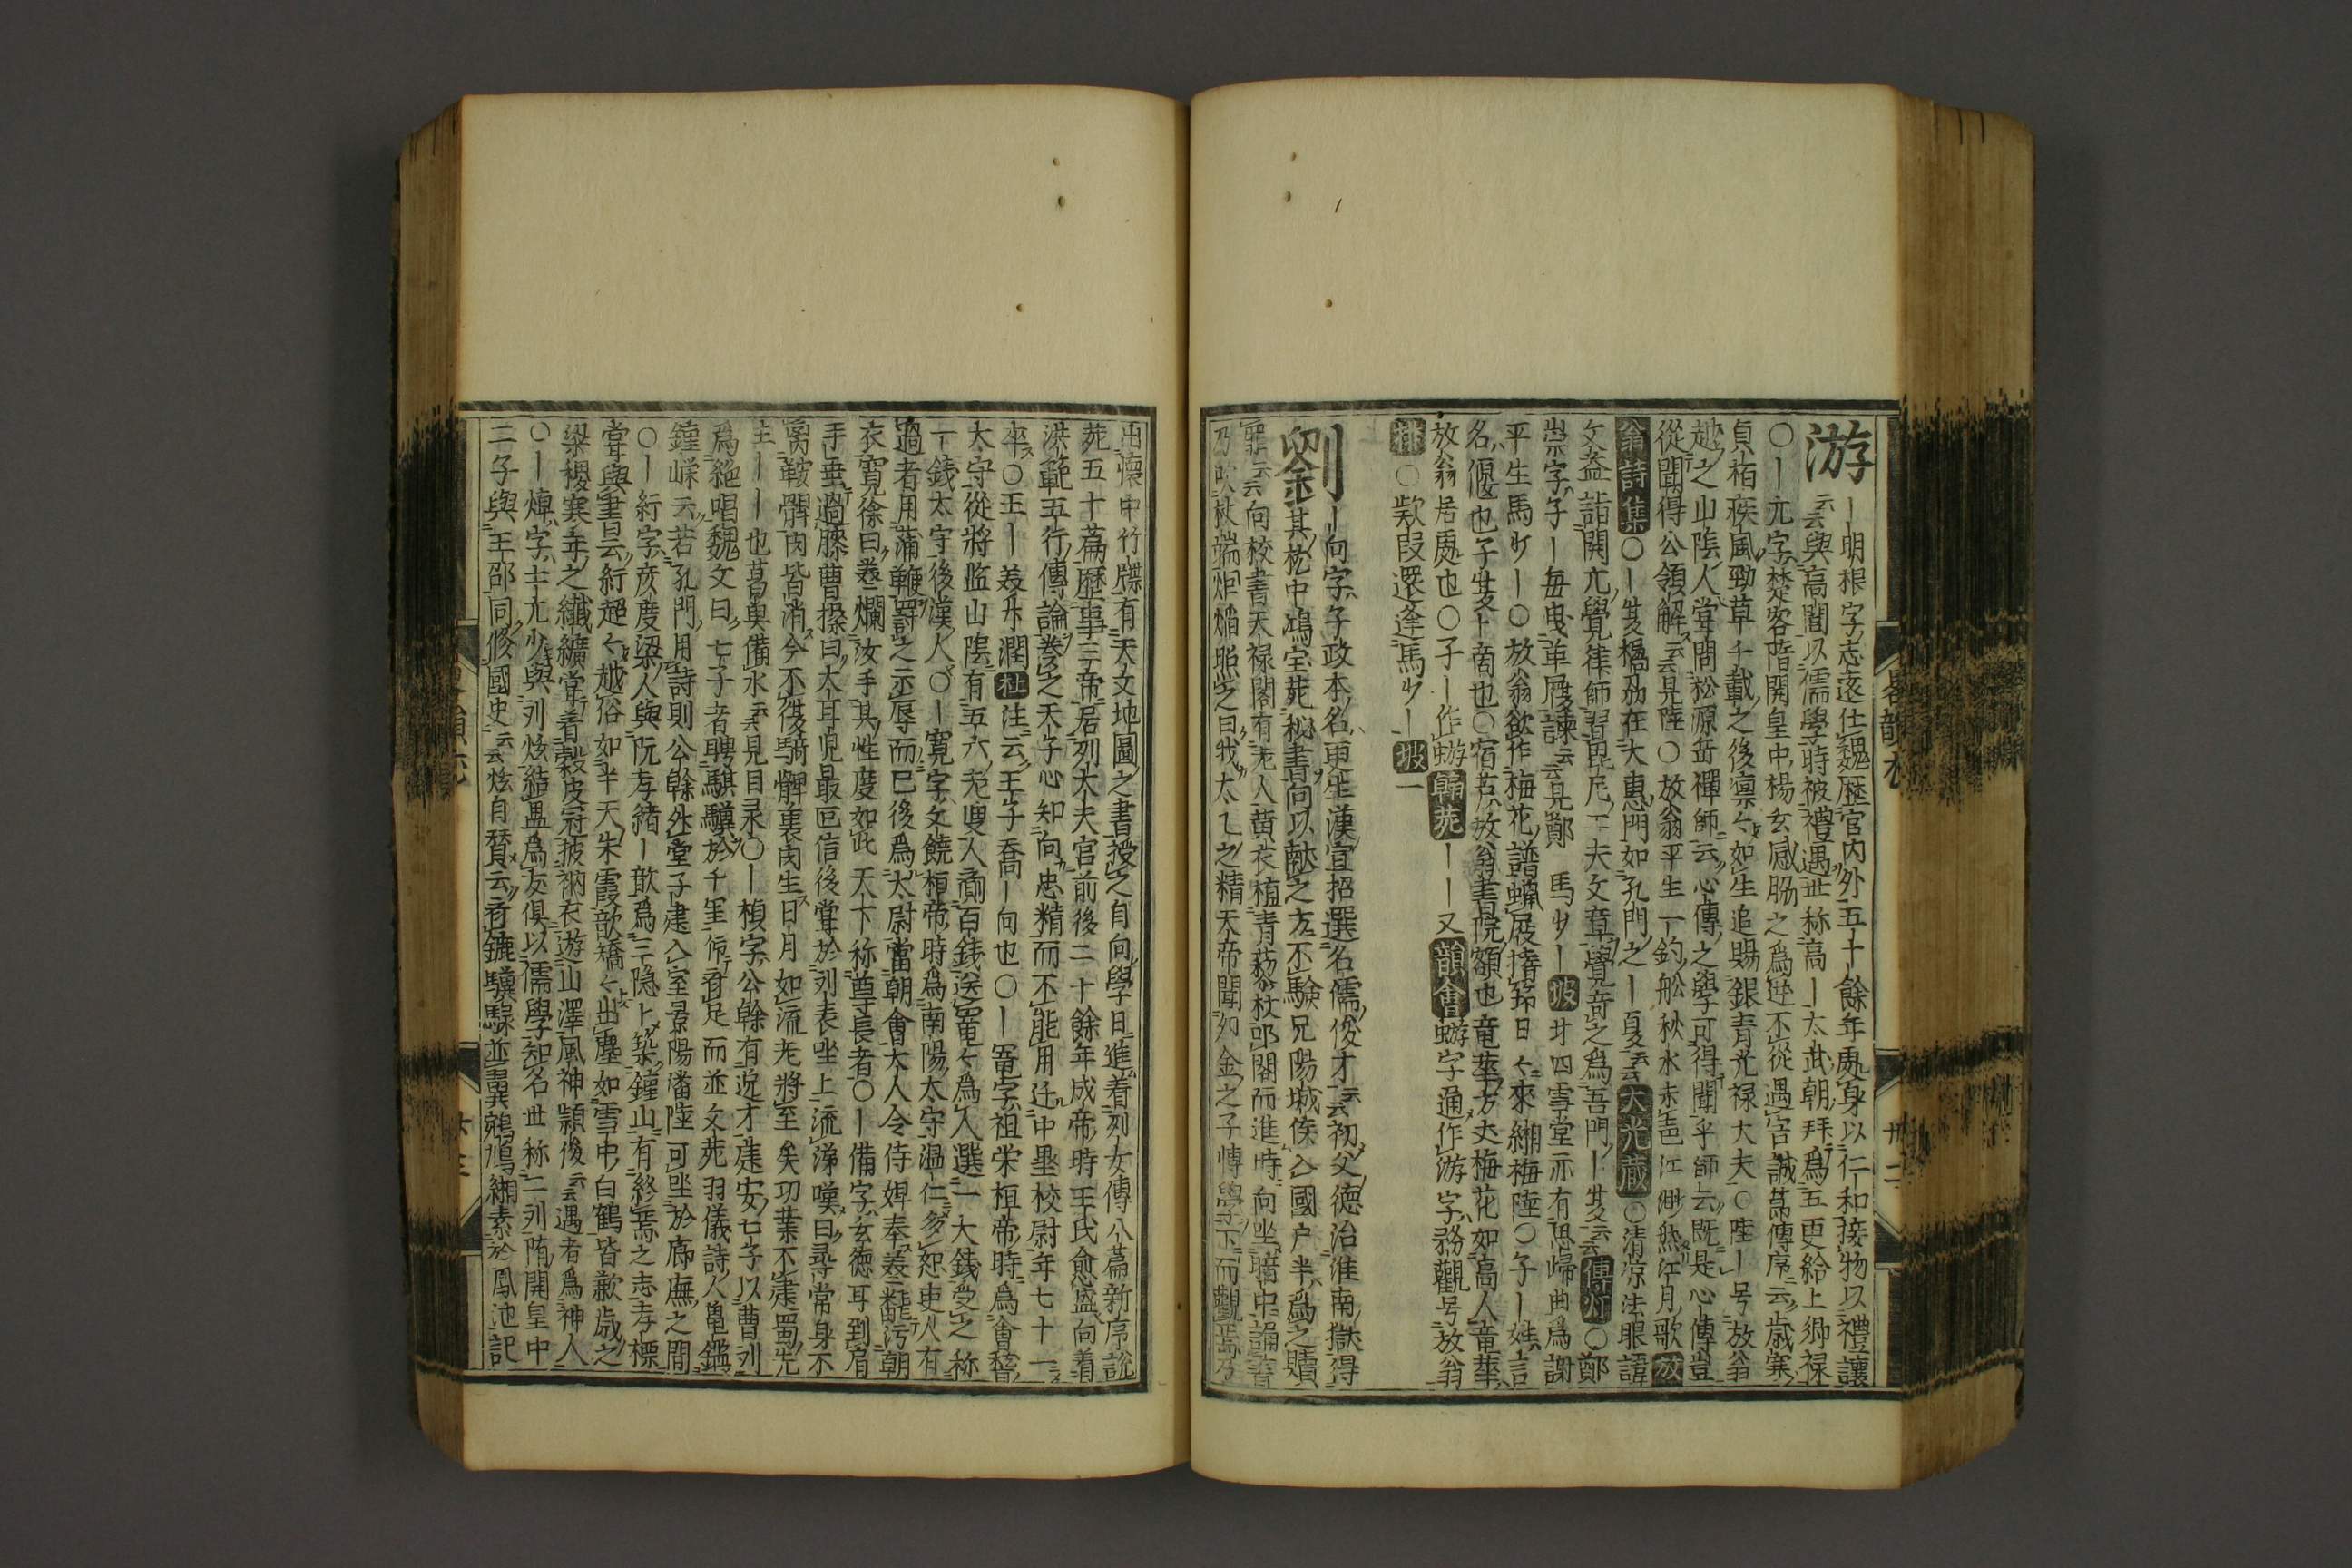 游
ー明根字志遠仕魏歷官内外五十餘年處身以仁和接物以禮讓
云云與高閭以儒學時被禮遇世称高ー太武朝拜爲五更給上卿禄
〇ー元字楚客階開皇中楊玄感脇之爲逆不從遇害誠莭傳序云歳寒
貞栢疾風勁草千載之後凛々如生追賜銀青光禄大夫〇陸ー号放翁
越之山陰人甞問松源岳禪師云心傳之學可得聞乎師云既是心傳豈
從聞得公領解云云見陸〇放翁平生一釣舩秋水未邑江渺然江月歌放
翁詩集〇ー
在大惠門如孔門之ー夏云云大光蔵〇清凉法眼諱
文益詣開元覺律師習毘尼工夫文章覺竒之爲吾門ー
云云傳灯〇鄭
崇字子ー毎曳革履諌云云見鄭 馬少ー坡廿四雪堂亦有思歸曲爲謝
平生馬少ー〇放翁欲作梅花譜蠟屐搘筇日々來緗梅陸〇子ー姓言
名偃也子夏卜商也〇宿
放翁書院額也竜華方丈梅花如高人竜華
放翁居處也〇子ー作蝣韓苑ーー又韻會蝣字通作游字務觀号放翁
排〇欵段還逢馬少ー坡一
劉
ー向字子政本名更生漢宣招選名儒俊才云云初父德治淮南獄得
其枕中鴻宝苑秘書向以献之方不驗兄陽城侯入國户半爲之贖
罪云云向校書天禄閣有老人黄衣植青藜杖卯閣而進時向坐暗中誦書
乃吹杖端炬燔照之曰我太乙之精天帝聞卯金之子博學下而觀焉乃
出懐中竹牒有天文地圖之書授之自向學日進着列女傳八篇新序説
苑五十篇歷事三帝居列大夫官前後二十餘年成帝時王氏愈盛向着
洪範五行傳論奏之天子心知向忠精而不能用迁中壘校尉年七十一
卒〇王ー
潤杜注云王子喬ー向也〇ー寵字祖栄桓帝時爲會稽
太守從將监山陰有五六老叟人賫百錢送寵々爲人選一大錢受之称
一錢太守後漢人〇ー寛字文饒桓帝時爲南陽太守温仁多恕吏人有
過者用蒲鞭罸之示辱而已後爲太尉當朝會太人令侍婢奉羹飜污朝
衣寛徐曰羹爛汝手其性度如此天下称尊長者〇ー備字玄徳耳到肩
手垂過膝曹操曰大耳児最叵信後甞於列表坐上流涕嘆曰尋常身不
离鞍髀肉皆消今不復騎髀裏肉生日月如流老將至矣功業不建蜀先
主ーーー也葛與備水云云見目录〇ー楨字公幹有逸才建安七子以曹列
爲絶唱魏文曰七子者騁騏驥於千里
足而並文苑羽儀詩人龜鑑
鍾嵘云若孔門用詩則公幹外堂子建入室景陽潘陸可坐於廊廡之間
〇ー
字彦度梁人與阮孝緒ー歊爲三隐卜築鍾山有終焉之志孝標
甞與書云
超々越俗如半天朱霞歊矯々出塵如雪中白鶴皆歉歳之
梁稷寒年之纎纊甞着穀皮冠披衲衣遊山澤風神頴俊云云遇者爲神人
〇ー焯字士元少與列炫結盟爲友俱以儒學知名世称二列隋開皇中
二子與王邵同脩國史云云炫自賛云
驥騄並翼鵷鴻緗素於鳳池記